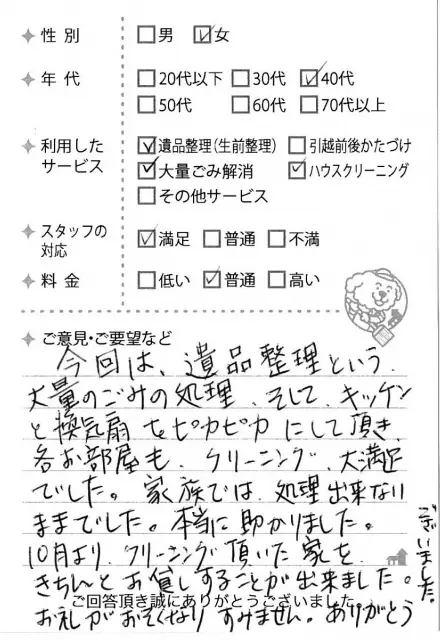 性別 □男 ☑女
年代 □20代以下 □30代 ☑40代
□50代 □60代 □70代以上
利用した
サービス
☑遺品整理(生前整理) □引越前後かたづけ
☑大量ごみ解消 ☑ハウスクリーニング
□その他サービス
スタッフの
対応
☑満足 □普通 □不満
料金 □低い ☑普通 □高い
ご意見・ご要望など
今回は、遺品整理という、
大量のごみの処理、そして、キッチン
と換気扇をピカピカにして頂き、
各お部屋も、クリーニング、大満足
でした。家族では、処理出来ない
ままでした。本当に助かりました。
10月より、クリーニング頂いた家を、
きちんとお貸しすることが出来ました。
お礼がおそくなりすみません。ありがとう
ございました。
ご回答頂き誠にありがとうございました。